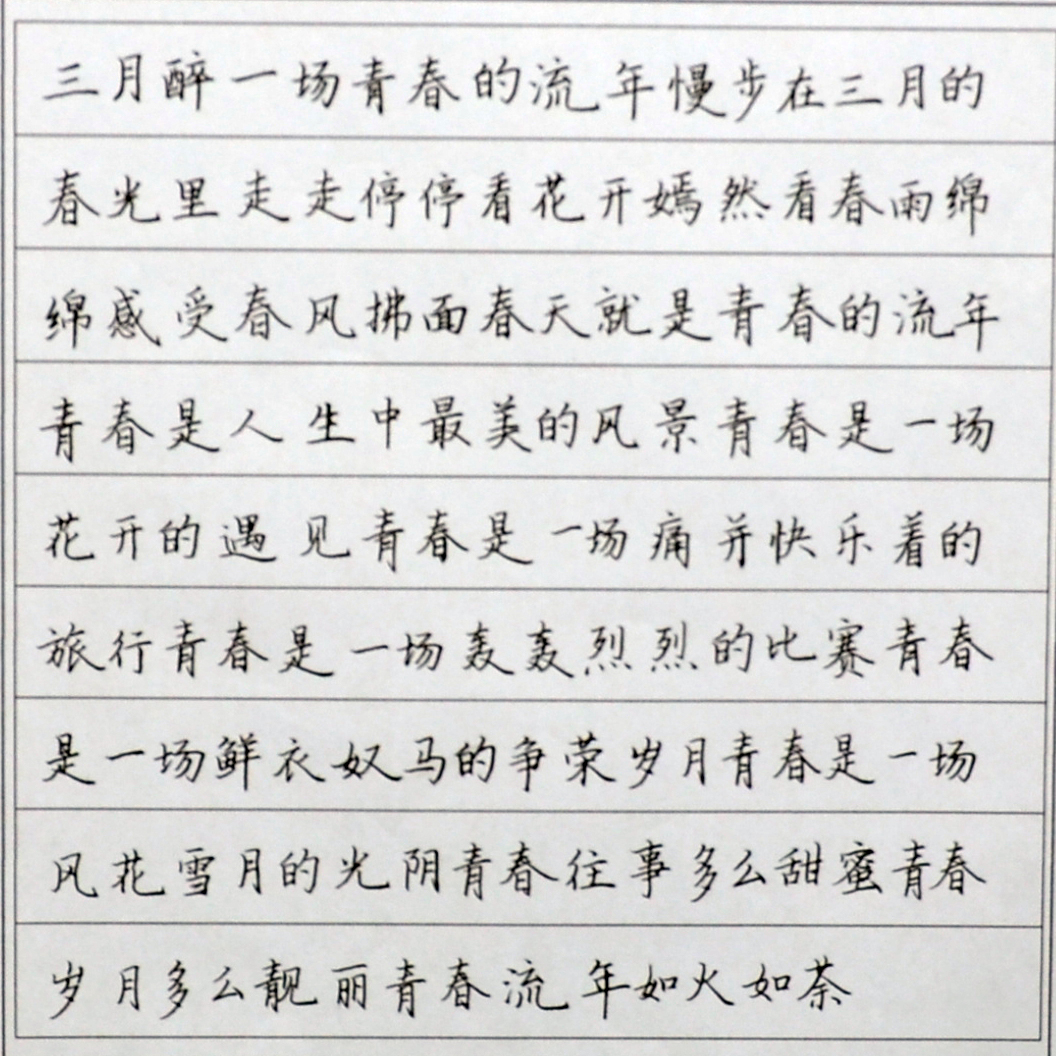 三月醉一场青春的流年慢步在三月的
春光里走走停停看花开嫣然看春雨绵
绵感受春风拂面春天就是青春的流年
青春是人生中最美的风景青春是一场
花开的遇见青春是一场痛并快乐着的
旅行青春是一场轰轰烈烈的比赛青春
是一场鲜衣奴马的争荣岁月青春是一场
风花雪月的光阴青春往事多么甜蜜青春
岁月多么靓丽青春流年如火如荼